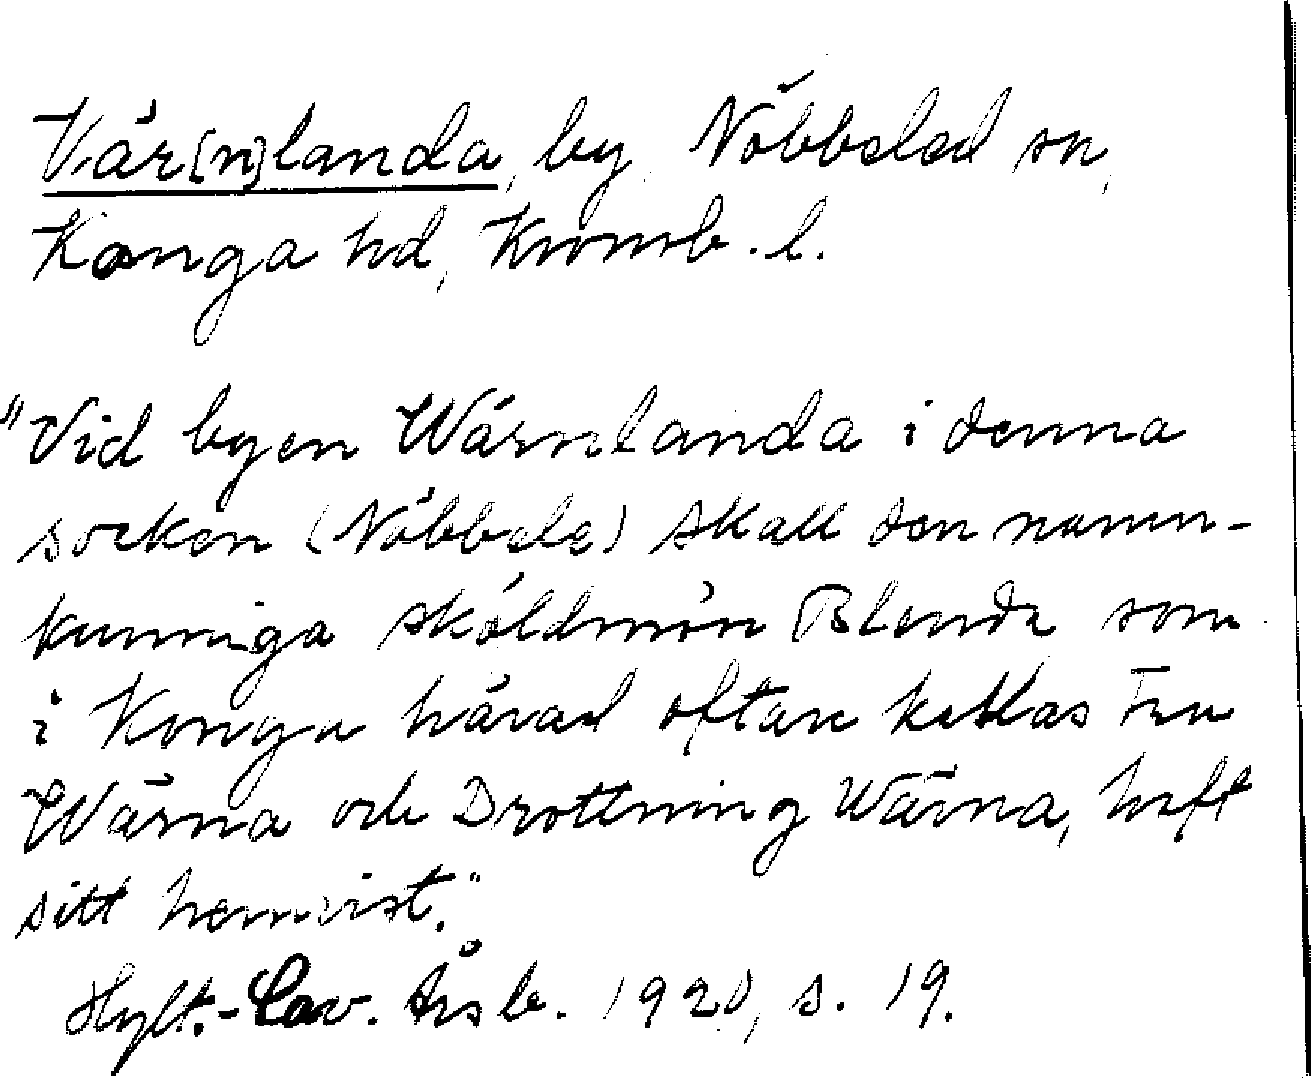 Vär[n]landa, by, Nöbbeled sn,
Konga hd, Kronob. l.
"Vid byen Wärnlanda i denna
socken (Nöbbele) skall den namn-
kunniga sköldmön Blenda som
i Konga härad oftare kallas Fru
Wärna och Drottning Wärna, haft
sitt hemvist."
Hylt.-Cav. Årsb. 1920, s. 19.